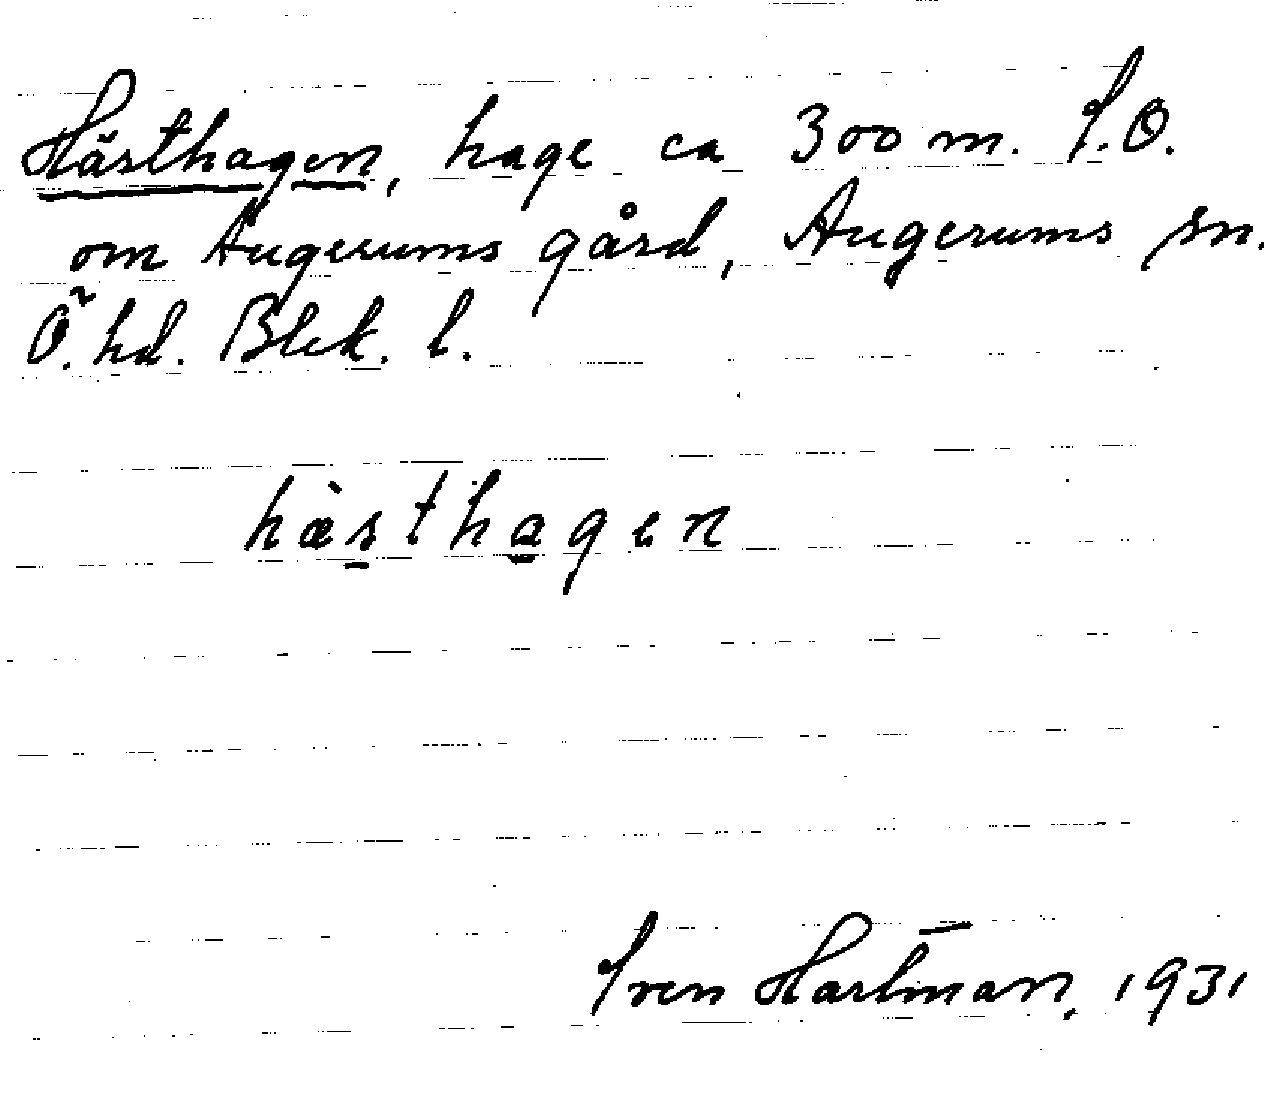 Hästhagen, hage ca 300 m. S.O.
om Augerums gård, Augerums sn.
Ö. hd. Blek. l.
hæ̀sthagen
Sven Hartman, 1931